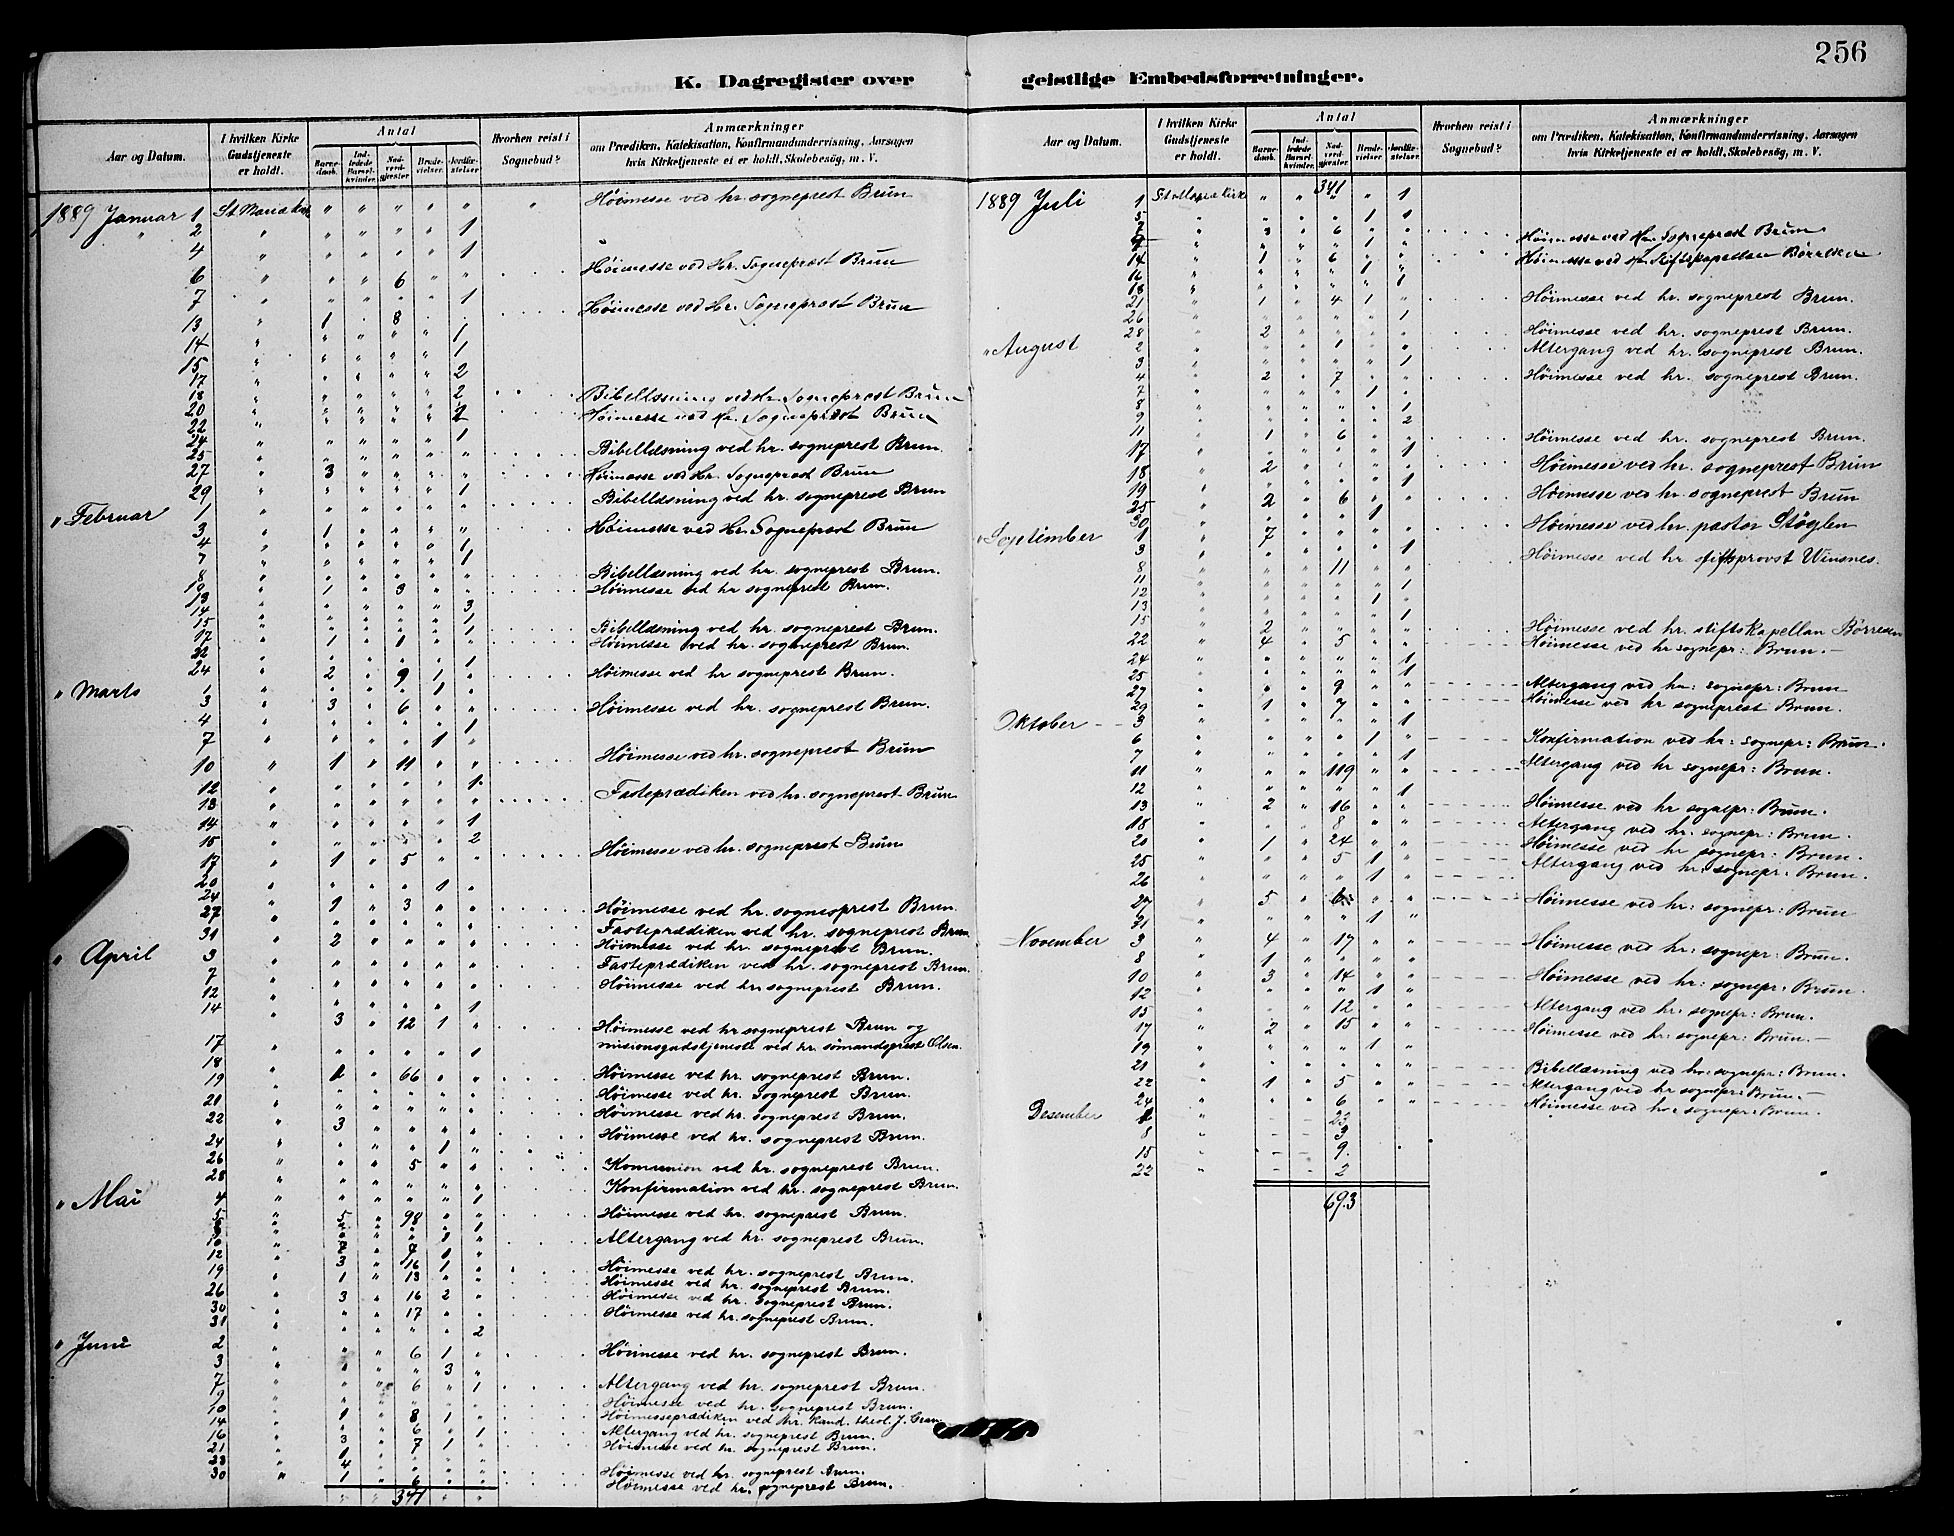 256
K. Dagregister over geistlige Embedsforretninger.
Aar og Datum.
I hvilken Kirke Gudstjeneste er holdt.
Antal
Barnedaab.
Indledede Barselkvinder.
Nadverdgjester
Brudevielser.
Jordfæstelser
Hvorhen reist i Sognebud?
Anmærkninger
om Prædiken, Katekisation, Konfirmandundervisning, Aarsagen
hvis Kirketjeneste ei er holdt, Skolebesøg, m. V.
1889 Januar 1 St Maria kirke " " " " " " Høimesse ved hr. sogneprest Brun
" 2 " " " " " 1
4 " " " " " 1
6 " " " 6 " " Høimesse ved Hr. Sogneprest Brun
7 " " " " " 1
13 " 1 8 Høimesse ved Hr. Sogneprest Brun
14 " " " " " 1
15 " " " " " 1
17 " " " " " 2
18 " " " " " 2 Bibellæsning ved Hr. Sogneprest Brun
20 Høimesse ved Hr. Sogneprest Brun
22
24 Bibellæsning ved hr. sogneprest Brun.
25
27 " 3 Høimesse ved Hr. Sogneprest Brun
29 Bibellæsning ved hr. sogneprest Brun
" Februar 1
3 " 1 Høimesse ved Hr. Sogneprest Brun
4 1
7 1 Bibellæsning ved hr. sogneprest Brun.
8
10 " 1 " 3 Høimesse ved hr sogneprest Brun.
13 3
14 1
15 1 Bibellæsning ved hr. sogneprest Brun.
17 " 1 " 1 Høimesse ved hr. sogneprest Brun.
22 1
24 " 2 " 9 1 Høimesse ved hr sogneprest Brun.
" Marts 1 1
3 " 3 " 6 Høimesse ved hr. sogneprest Brun.
4 1
7 1
10 " 1 " 11 Høimesse ved hr. sogneprest Brun
12 1
13 Fasteprædiken ved hr. sogneprest Brun
14 1
15 2
17 " 1 " 5 Høimesse ved hr. sogneprest Brun
20 1
24 " 1 " 3 Høimesse ved hr. sogneprest Brun.
27 Fasteprædiken ved hr. sogneprest Brun
31 " 2 Høimesse ved hr. sogneprest Brun.
" April 3 Fasteprædiken ved hr. sogneprest Brun.
7 Høimesse ved hr sogneprest Brun.
12 1
14 " 3 " 12 1 Høimesse ved hr sogneprest Brun og
misionsgudstjeneste ved hr. sømandsprest Olsen.
17 1
18 66 Høimesse ved hr. sogneprest Brun.
19 Høimesse ved hr. sogneprest Brun.
21 Høimesse ved hr. sogneprest Brun.
22 3 Høimesse ved hr. sogneprest Brun.
24 1
26 5 Komunion ved hr. sogneprest Brun.
28 Konfirmation ved hr. sogneprest Brun.
" Mai 4 1
5 " 5 " 98 Høimesse ved hr. sogneprest Brun.
10 Altergang ved hr. sogneprest Brun.
12 3 16 1 Høimesse ved hr. sogneprest Brun.
19 1 " 13 Høimesse ved hr. sogneprest Brun.
26 3 " 16 2 Høimesse ved hr. sogneprest Brun.
30 17 Høimesse ved hr. sogneprest Brun.
31 2
" Juni 2 6 1 Høimesse ved hr. sogneprest Brun.
3 3
7 6 " 1 Altergang ved hr. sogneprest Brun.
9 Høimesse ved hr. sogneprest Brun.
10 1 8 1 Høimesseprædiken ved hr. kand. theol. J. Gran
14 6 1 Altergang ved hr. sogneprest Brun.
16 3 7 1 Høimesse ved hr. sogneprest Brun.
21 1
23 4 Høimesse ved hr. sogneprest Brun.
30 1 6 Høimesse ved hr. sogneprest Brun.
341
Aar og Datum.
I hvilken Kirke Gudstjeneste er holdt.
Antal
Barnedaab.
Indledede Barselkvinder.
Nadverdgjester
Brudevielser.
Jordfæstelser.
Hvorhen reist i Sognebud?
Anmærkninger
om Prædiken, Katekisation, Konfirmandundervisning, Aarsagen
hvis Kirketjeneste ei er holdt, Skolebesøg, m. V.
341
1889 Juli 1 St Maria Kirke " " " " 1
5 " " " " 1 1
7 " 3 " 6 Høimesse ved Hr. Sogneprest Brun
9 1
14 " 1 " 6 Høimesse ved Hr Stiftskapellan Børresen
16 1
18 1
21 " 1 " 4 1 Høimesse ved hr. sogneprest Brun.
26 1
28 " 2 Høimesse ved hr. sogneprest Brun.
" August 2 1 Altergang ved hr. sogneprest Brun.
3 1
4 " 2 " 7 Høimesse ved hr. sogneprest Brun.
7 1
8 1
9 2
11 " 1 " 6 Høimesse ved hr. sogneprest Brun.
17 1
18 " 2 Høimesse ved hr. sogneprest Brun
19 1
25 " 2 " 6 Høimesse ved hr. sogneprest Brun
30 1
" September 1 7 Høimesse ved hr. pastor Støylen
3 1
8 11 Høimesse ved hr stiftsprovst Winsnes.
11 1
12 1
13 1
15 2 Høimesse ved hr. stiftskapellan Børresen
22 4 " 5 Høimesse ved hr sognepr: Brun.
24 1
25 1
27 9 Altergang ved hr: sognepr: Brun
29 1 " 7 Høimesse ved hr sogneprest Brun.
Oktober 3 1
6 1 Konfirmation ved hr: sognepr: Brun.
7 1
11 119 Altergang ved hr sognepr: Brun.
12 1
13 2 " 16 Høimesse ved hr sognepr: Brun.
18 8 Altergang ved hr. sognepr: Brun.
20 1 " 24 Høimesse ved hr sognepr: Brun.
25 5 1 Altergang ved hr: sognepr: Brun.
26 1
27 5 Høimesse ved hr: sognepr: Brun
31 1
November 3 4 " 17 Høimesse ved hr: sognepr: Brun.
8 1
10 3 " 14 Høimesse ved hr: sognepr: Brun.
12 1
15 12 Altergang ved hr: sognepr: Brun.
17 2 " 15 Høimesse ved hr: sognepr: Brun.
19 1
21 Bibellæsning ved hr: sognepr: Brun.
22 1 5 Altergang ved hr sognepr: Brun.
24 6 Høimesse ved hr: sognepr: Brun.
Desember 1 23
8 3
15 9.
22 2
693